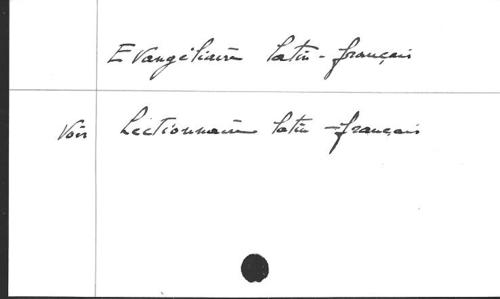 Evangéliaire latin-français
Voir Lectionnaire latin-français